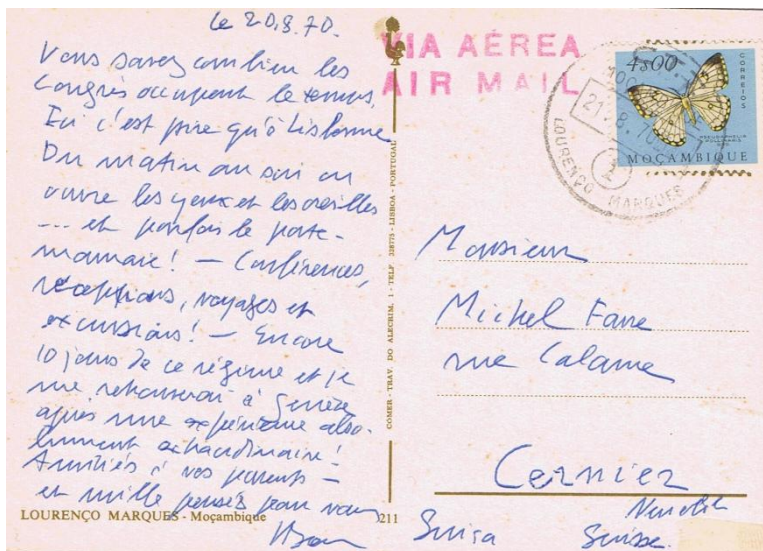 le 20.8.70.
Vous savez combien les
Congrès occupent le temps.
Ici c'est pire qu'à Lisbonne
Du matin au soir on
ouvre les yeux et les oreilles
... et parfois le porte-
monnaie! — Conférences,
réceptions, voyages et
excursions! — Encore
10 jours de ce régime et je
me retrouverai à Genève
après une expérience abso-
lument extraordinaire!
Amitiés à vos parents —
et mille pensées pour vous
LOURENÇO MARQUES - Moçambique
211
COMER - TRAV. DO ALECRIM, 1 - TELF 328775 - LISBOA - PORTUGAL
VIA AÉREA
AIR MAIL
4$00
CORREIOS
MOÇAMBIQUE
21.8.70
2
LOURENÇO MARQUES
Monsieur
Michel Favre
rue Calame
Cernier
Neuchâtel
Suiça Suisse.